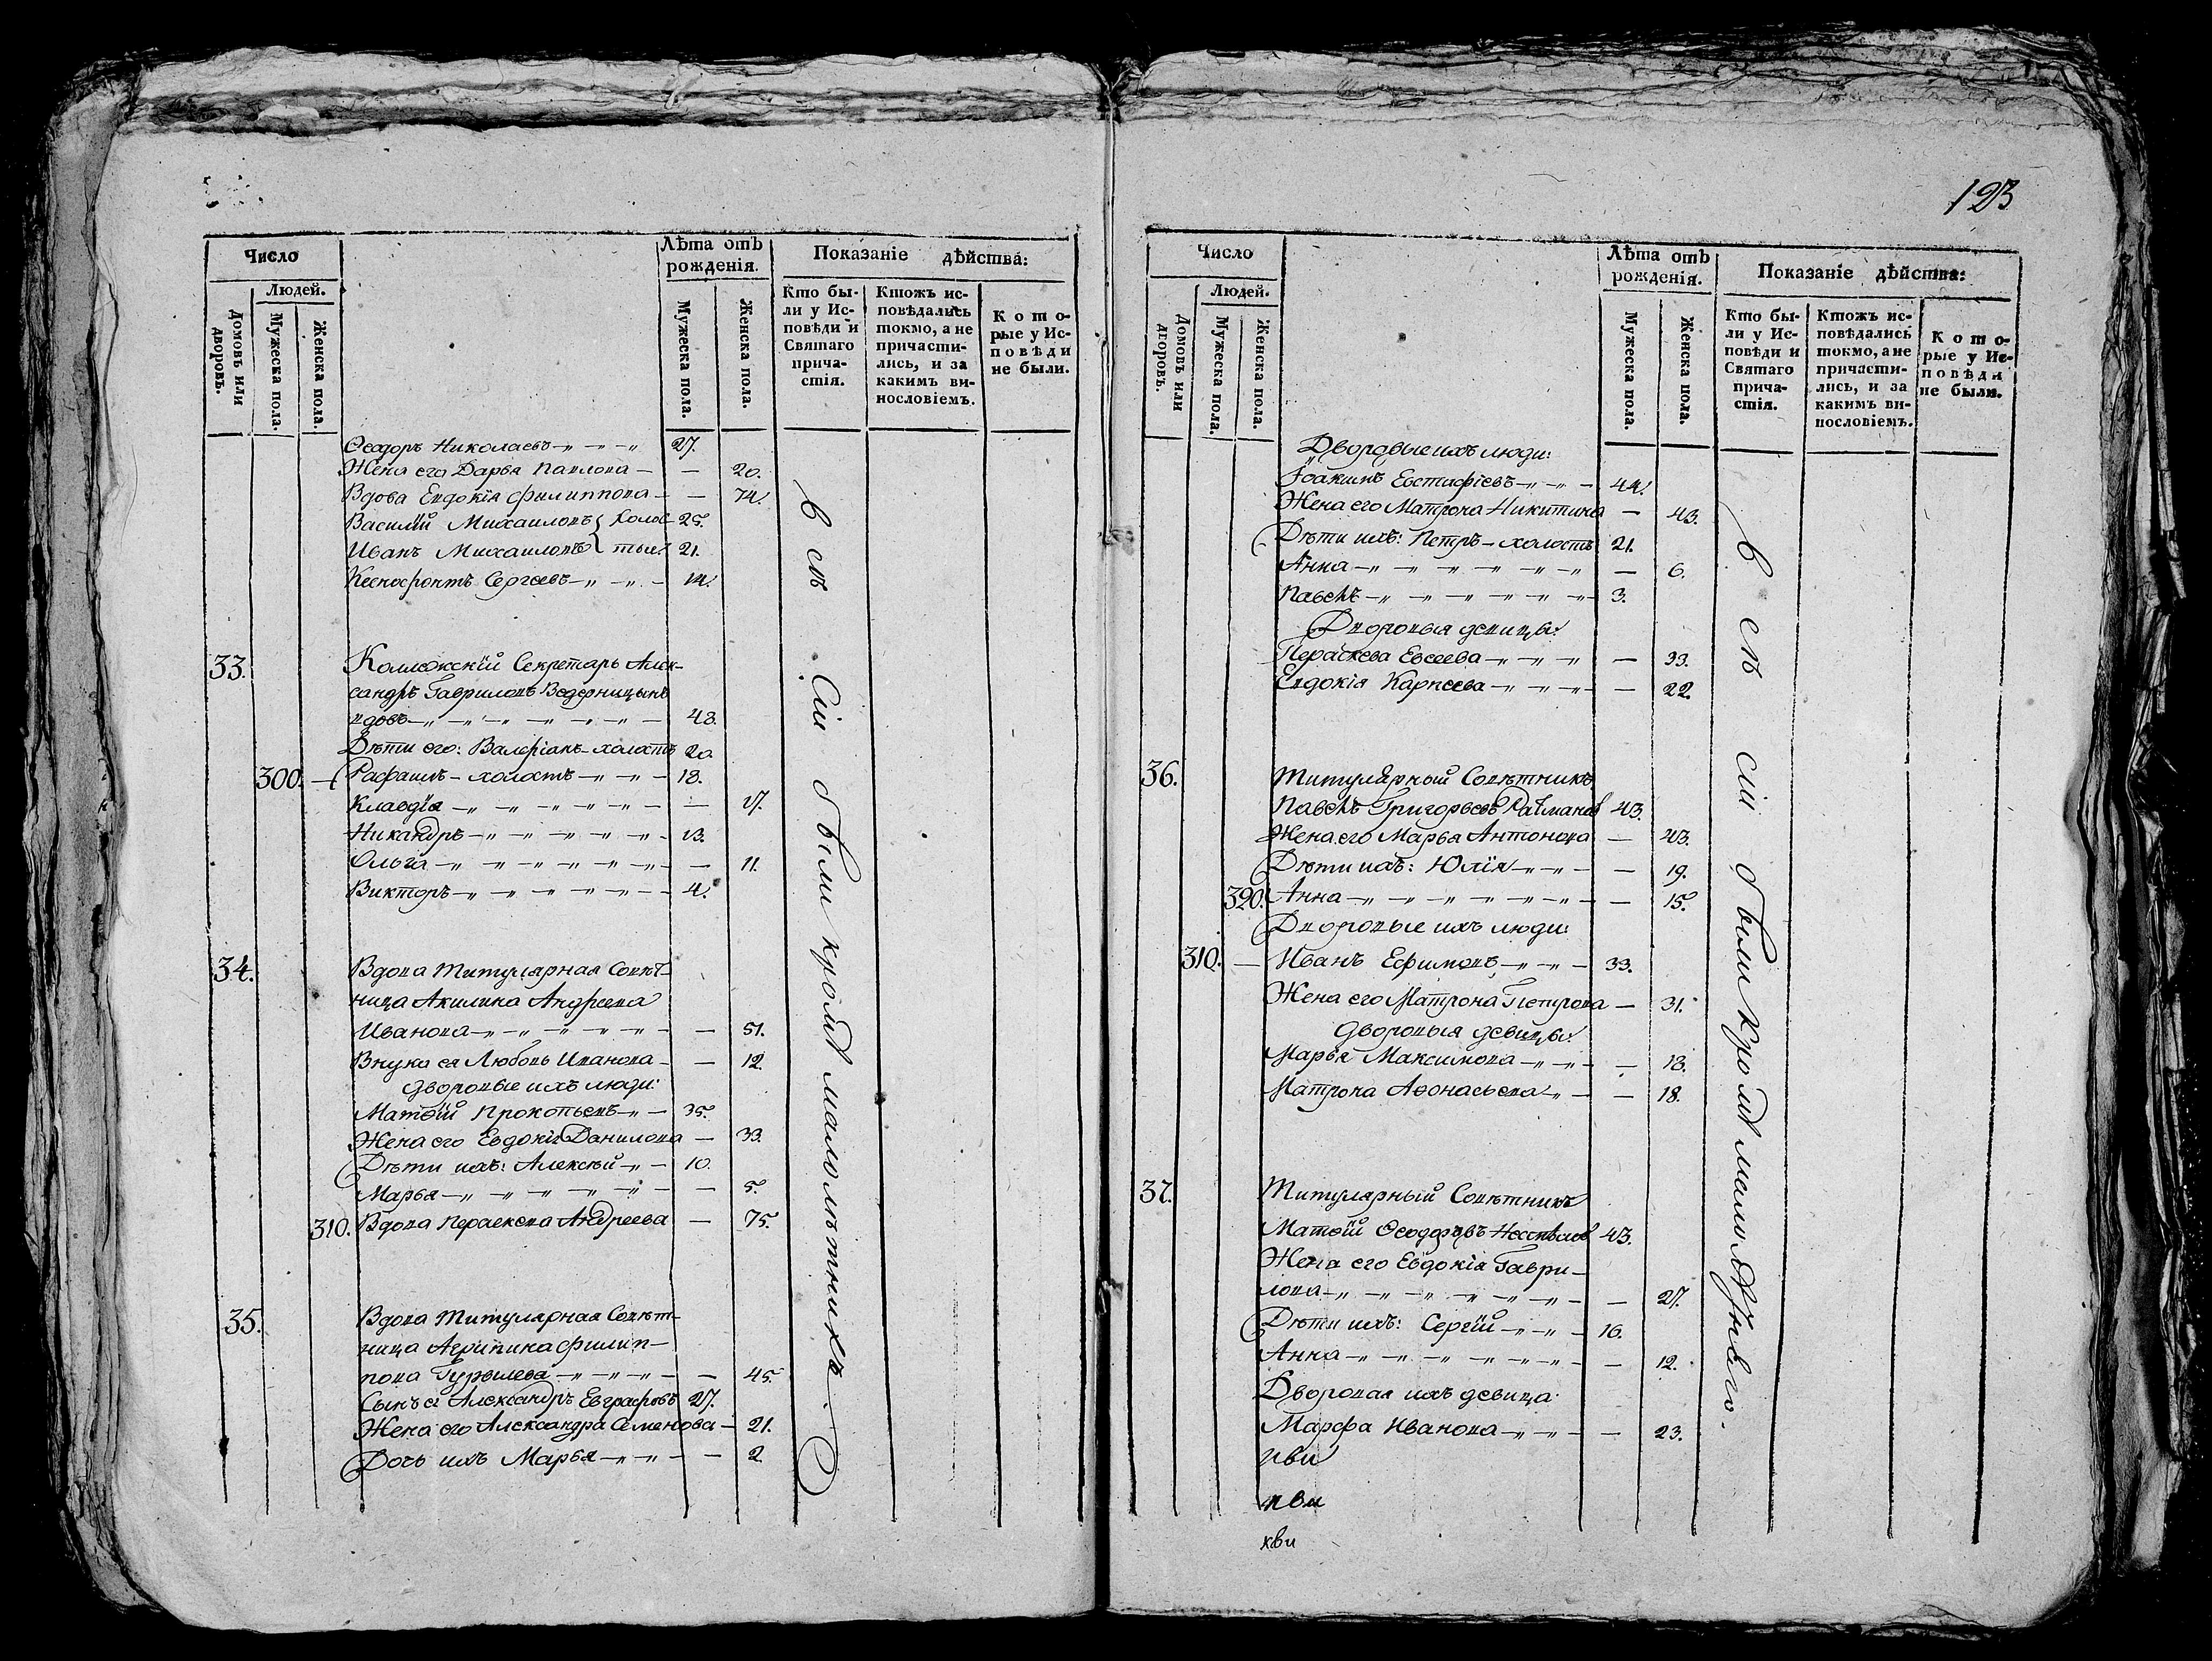 Число
Людей.
Домовъ или дворовъ.
Мужеска пола.
Женска пола.
Лѣта отъ рожденія.
Мужеска пола.
Женска пола.
Показаніе дѣйства:
Кто бы-
ли у Ис-
повѣди и
Святаго
прича-
стія.
Ктожъ ис-
повѣдались
токмо, а не
причасти-
лись, и за
какимъ ви-
нословіемъ.
Кото-
рые у Ис-
повѣди
не были.
Ѳеодоръ Николаевъ 27.
Жена его Дарья Павлова — 20.
Вдова Евдокія Филиппова — 74.
Василій Михаиловъ } холос- 25.
Иванъ Михаиловъ } тые. 21.
Ксенофонтъ Сергѣевъ 14.
33. Коллежскій Секретарь Алек-
сандръ Гавриловъ Ведерницынъ
вдовъ 48.
Дѣти его: Валеріанъ - холостъ 20
300. — Рафаилъ - холостъ 18.
Клавдія — 17.
Никандръ 13.
Ольга — 11.
Викторъ 4.
34. Вдова Титулярная Совѣт-
ница Акилина Андреева
Иванова — 51.
Внука ея Любовь Иванова — 12.
Дворовые ихъ люди:
Матѳій Прокопьевъ 35.
Жена его Евдокія Данилова — 33.
Дѣти ихъ: Алексѣй 10.
Марья — 5.
310. Вдова Параскева Андреева — 75.
35. Вдова Титулярная Совѣт-
ница Агрипина Филип-
пова — 45.
Сынъ ея Александръ Евграфовъ 27.
Жена его Александра Семенова — 21.
Дочь ихъ Марья — 2.
всѣ сіи были кромѣ малолѣтнихъ.
123
Число
Людей.
Домовъ или дворовъ.
Мужеска пола.
Женска пола.
Лѣта отъ рожденія.
Мужеска пола.
Женска пола.
Показаніе дѣйства:
Кто бы-
ли у Ис-
повѣди и
Святаго
прича-
стія.
Ктожъ ис-
повѣдались
токмо, а не
причасти-
лись, и за
какимъ ви-
нословіемъ.
Кото-
рые у Ис-
повѣди
не были.
Дворовые ихъ люди:
Іоакимъ Евстафіевъ 44.
Жена его Матрона Никитина — 43.
Дѣти ихъ: Петръ - холостъ 21.
Анна — 6.
Павелъ 3.
Дворовыя девицы:
Параскева Евсеева — 33.
Евдокія Карпеева — 22.
36. Титулярной Совѣтникъ
Павелъ Григорьевъ 43.
Жена его Марья Антонова — 43.
Дѣти ихъ: Юлія — 19.
320. Анна — 15.
Дворовые ихъ люди:
310. — Иванъ Ефимовъ 33.
Жена его Матрона Петрова — 31.
Дворовыя девицы:
Марья Максимова — 13.
Матрона Аѳонасьева — 18.
37. Титулярный Совѣтникъ
Матѳій Ѳеодоровъ 43.
Жена его Евдокія Гаври-
лова — 27.
Дѣти ихъ: Сергій 16.
Анна — 12.
Дворовая ихъ девица:
Марфа Иванова — 23.
всѣ сіи были кромѣ малолѣтнего.